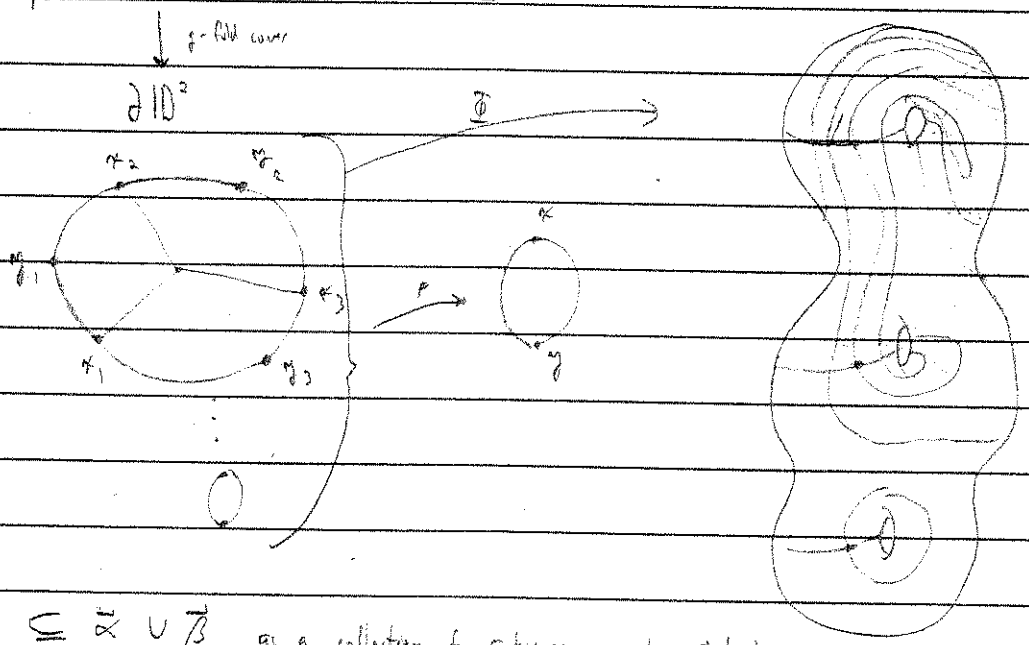 g-fold cover
∂ID²
Φ
x₂ y₂
x
y₁
x₃
p
x₁
y₃
y
⋮
⊆ α⃗ ∪ β⃗ as a collection of